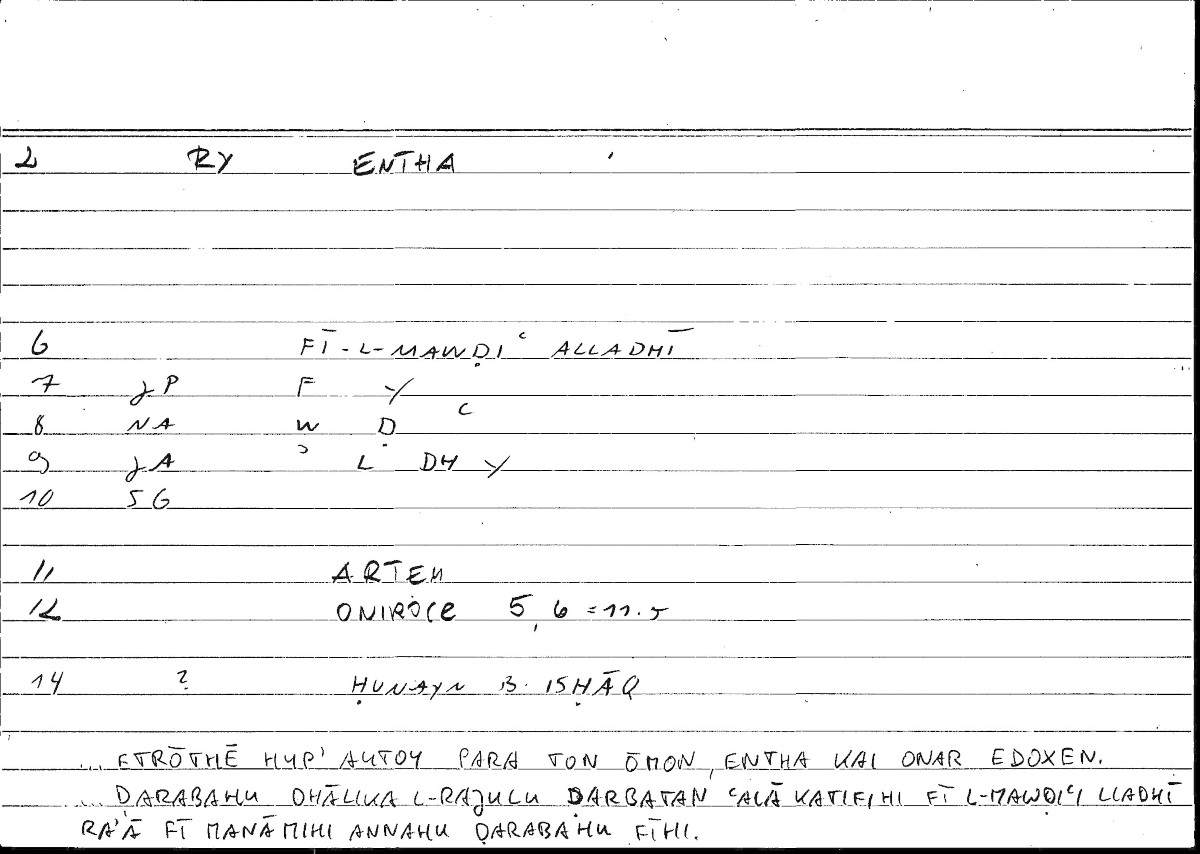 2 RY ENTHA
6 FĪ-L-MAWḌIʿ ALLADHĪ
7 JP F Y
8 NA W Ḍ ʿ
9 JA ʾ L DH Y
10 SG
11 ARTEM
12 ONIROCR 5,6 = 11.5
14 ? ḤUNAYN B. ISḤĀQ
... ETRŌTHĒ HYP' AUTOY PARA TON ŌMON, ENTHA KAI ONAR EDOXEN.
... ḌARABAHU DHĀLIKA L-RAJULU ḌARBATAN ʿALĀ KATIFIHI FĪ L-MAWḌIʿI LLADHĪ
RAʾĀ FĪ MANĀMIHI ANNAHU ḌARABAHU FĪHI.